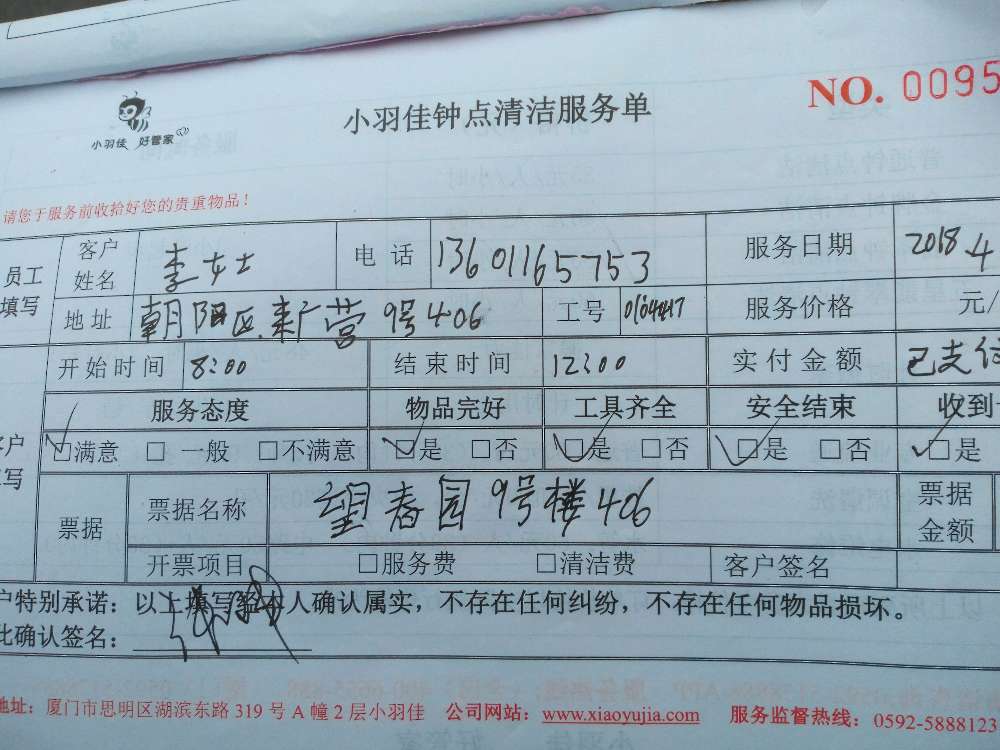 小羽佳 好管家
小羽佳钟点清洁服务单
NO. 0095
请您于服务前收拾好您的贵重物品！
员工填写 客户姓名 李女士 电话 13601165753 服务日期 2018.4
地址 朝阳区.来广营9号406 工号 服务价格 元/
开始时间 8:00 结束时间 12:00 实付金额 已支付
服务态度 物品完好 工具齐全 安全结束 收到
□满意 □一般 □不满意 □是 □否 □是 □否 □是 □否 □是
票据 票据名称 望春园9号楼406 票据金额
开票项目 □服务费 □清洁费 客户签名
户特别承诺：以上填写经本人确认属实，不存在任何纠纷，不存在任何物品损坏。
此确认签名：
地址：厦门市思明区湖滨东路319号A幢2层小羽佳 公司网站：www.xiaoyujia.com 服务监督热线：0592-5888123